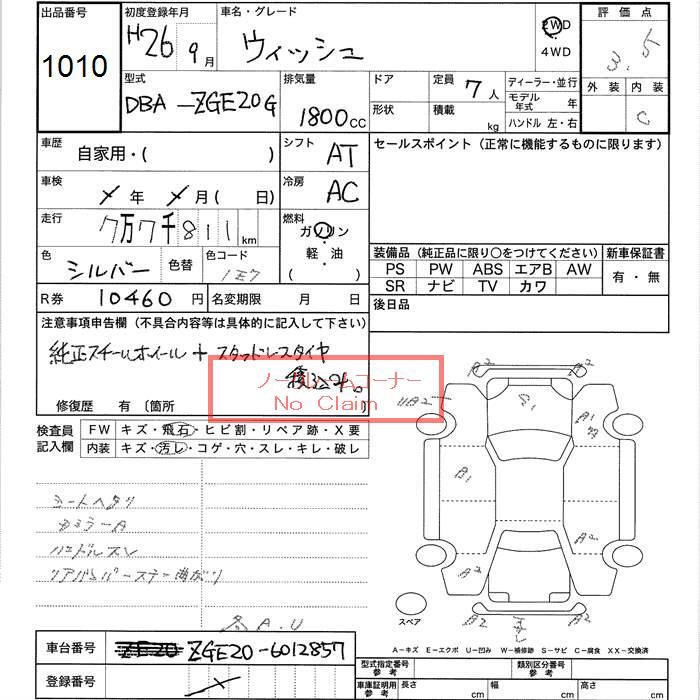 出品番号 初度登録年月 車名・グレード 2WD 評価点
1010 H26 9月 ウィッシュ 4WD 3.5
型式 排気量 ドア 定員 7人 ディーラー・並行 外装 内装
DBA-ZGE20G 1800cc 形状 積載 kg モデル年式 年 C
ハンドル 左・右
車歴 自家用・( ) シフト AT セールスポイント (正常に機能するものに限ります)
車検 年 月( 日) 冷房 AC
走行 7万7千811km 燃料 ガソリン
軽・油
( )
色 シルバー 色替 色コード 1E7
装備品 (純正品に限り○をつけてください) 新車保証書
PS PW ABS エアB AW 有・無
SR ナビ TV カワ
R券 10460円 名変期限 月 日 後日品
注意事項申告欄 (不具合内容等は具体的に記入して下さい)
純正スチールホイール + スタッドレスタイヤ
積込み。
ノークレームコーナー
No Claim
修復歴 有 〔箇所
検査員記入欄 FW キズ・飛石・ヒビ割・リペア跡・X要
内装 キズ・汚レ・コゲ・穴・スレ・キレ・破レ
シートヘタリ
カミラーA
ハンドルスレ
リアバンパーステー曲がり
各A.U
A2 A2
A1
B1
A2
A2
A2 A2
スペア
A-キズ E-エクボ U-凹み W-補修跡 S-サビ C-腐食 XX-交換済
車台番号 ZGE20-6012857
登録番号
型式指定番号 参考 類別区分番号 参考
車庫証明用 参考 長さ cm 幅 cm 高さ cm